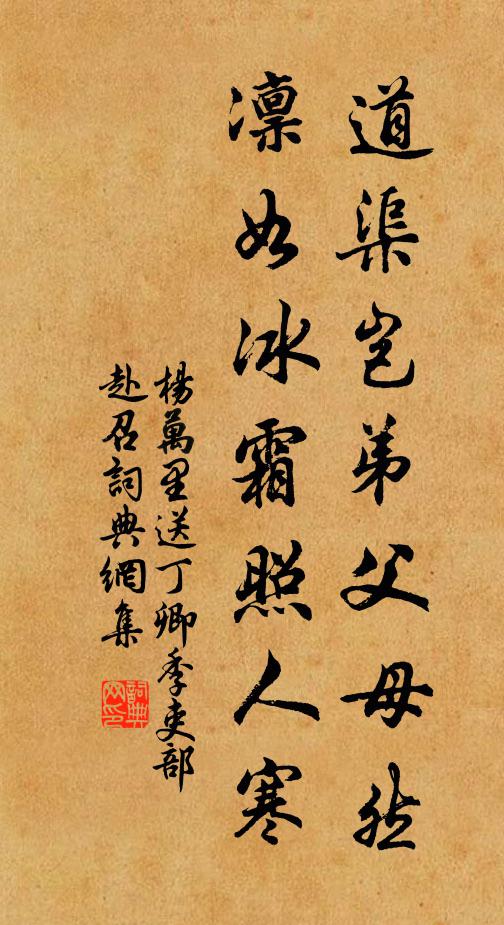 道渠岂弟父母然
凛如冰霜照人寒
楊萬里送丁卿季吏部
赴召詞典網集
詞典
网印